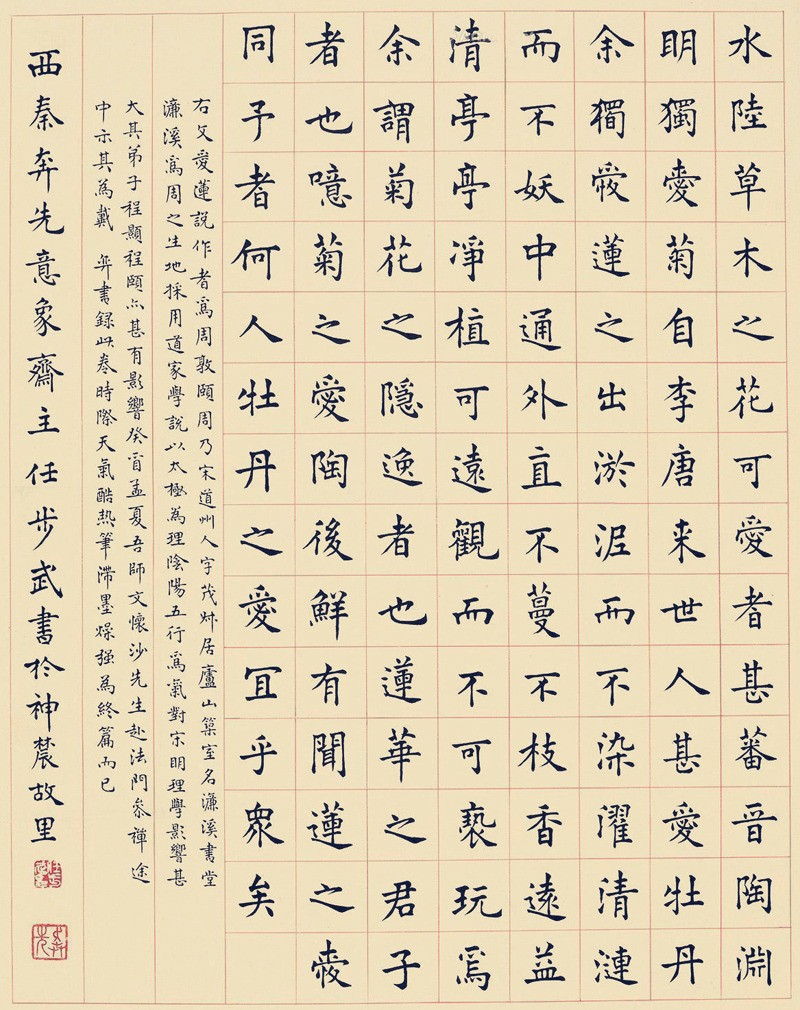 水陸草木之花可愛者甚蕃晉陶淵
明獨愛菊自李唐来世人甚愛牡丹
余獨愛蓮之出淤泥而不染濯清漣
而不妖中通外直不蔓不枝香遠益
清亭亭凈植可遠觀而不可褻玩焉
余謂菊花之隱逸者也蓮華之君子
者也噫菊之愛陶後鮮有聞蓮之愛
同予者何人牡丹之愛冝乎眾矣
右文愛蓮說作者為周敦頤周乃宋道州人字茂叔居廬山築室名濂溪書堂
濂溪為周之生地採用道家學說以太極為理陰陽五行為氣對宋明理學影響甚
大其弟子程顥程頤亦甚有影響癸酉孟夏吾師文懷沙先生赴法門參禪途
中示其為戴弁書錄此卷時際天氣酷熱筆滯墨燥强為終篇而已
西秦奔先意象齋主任步武書於神農故里
奔先